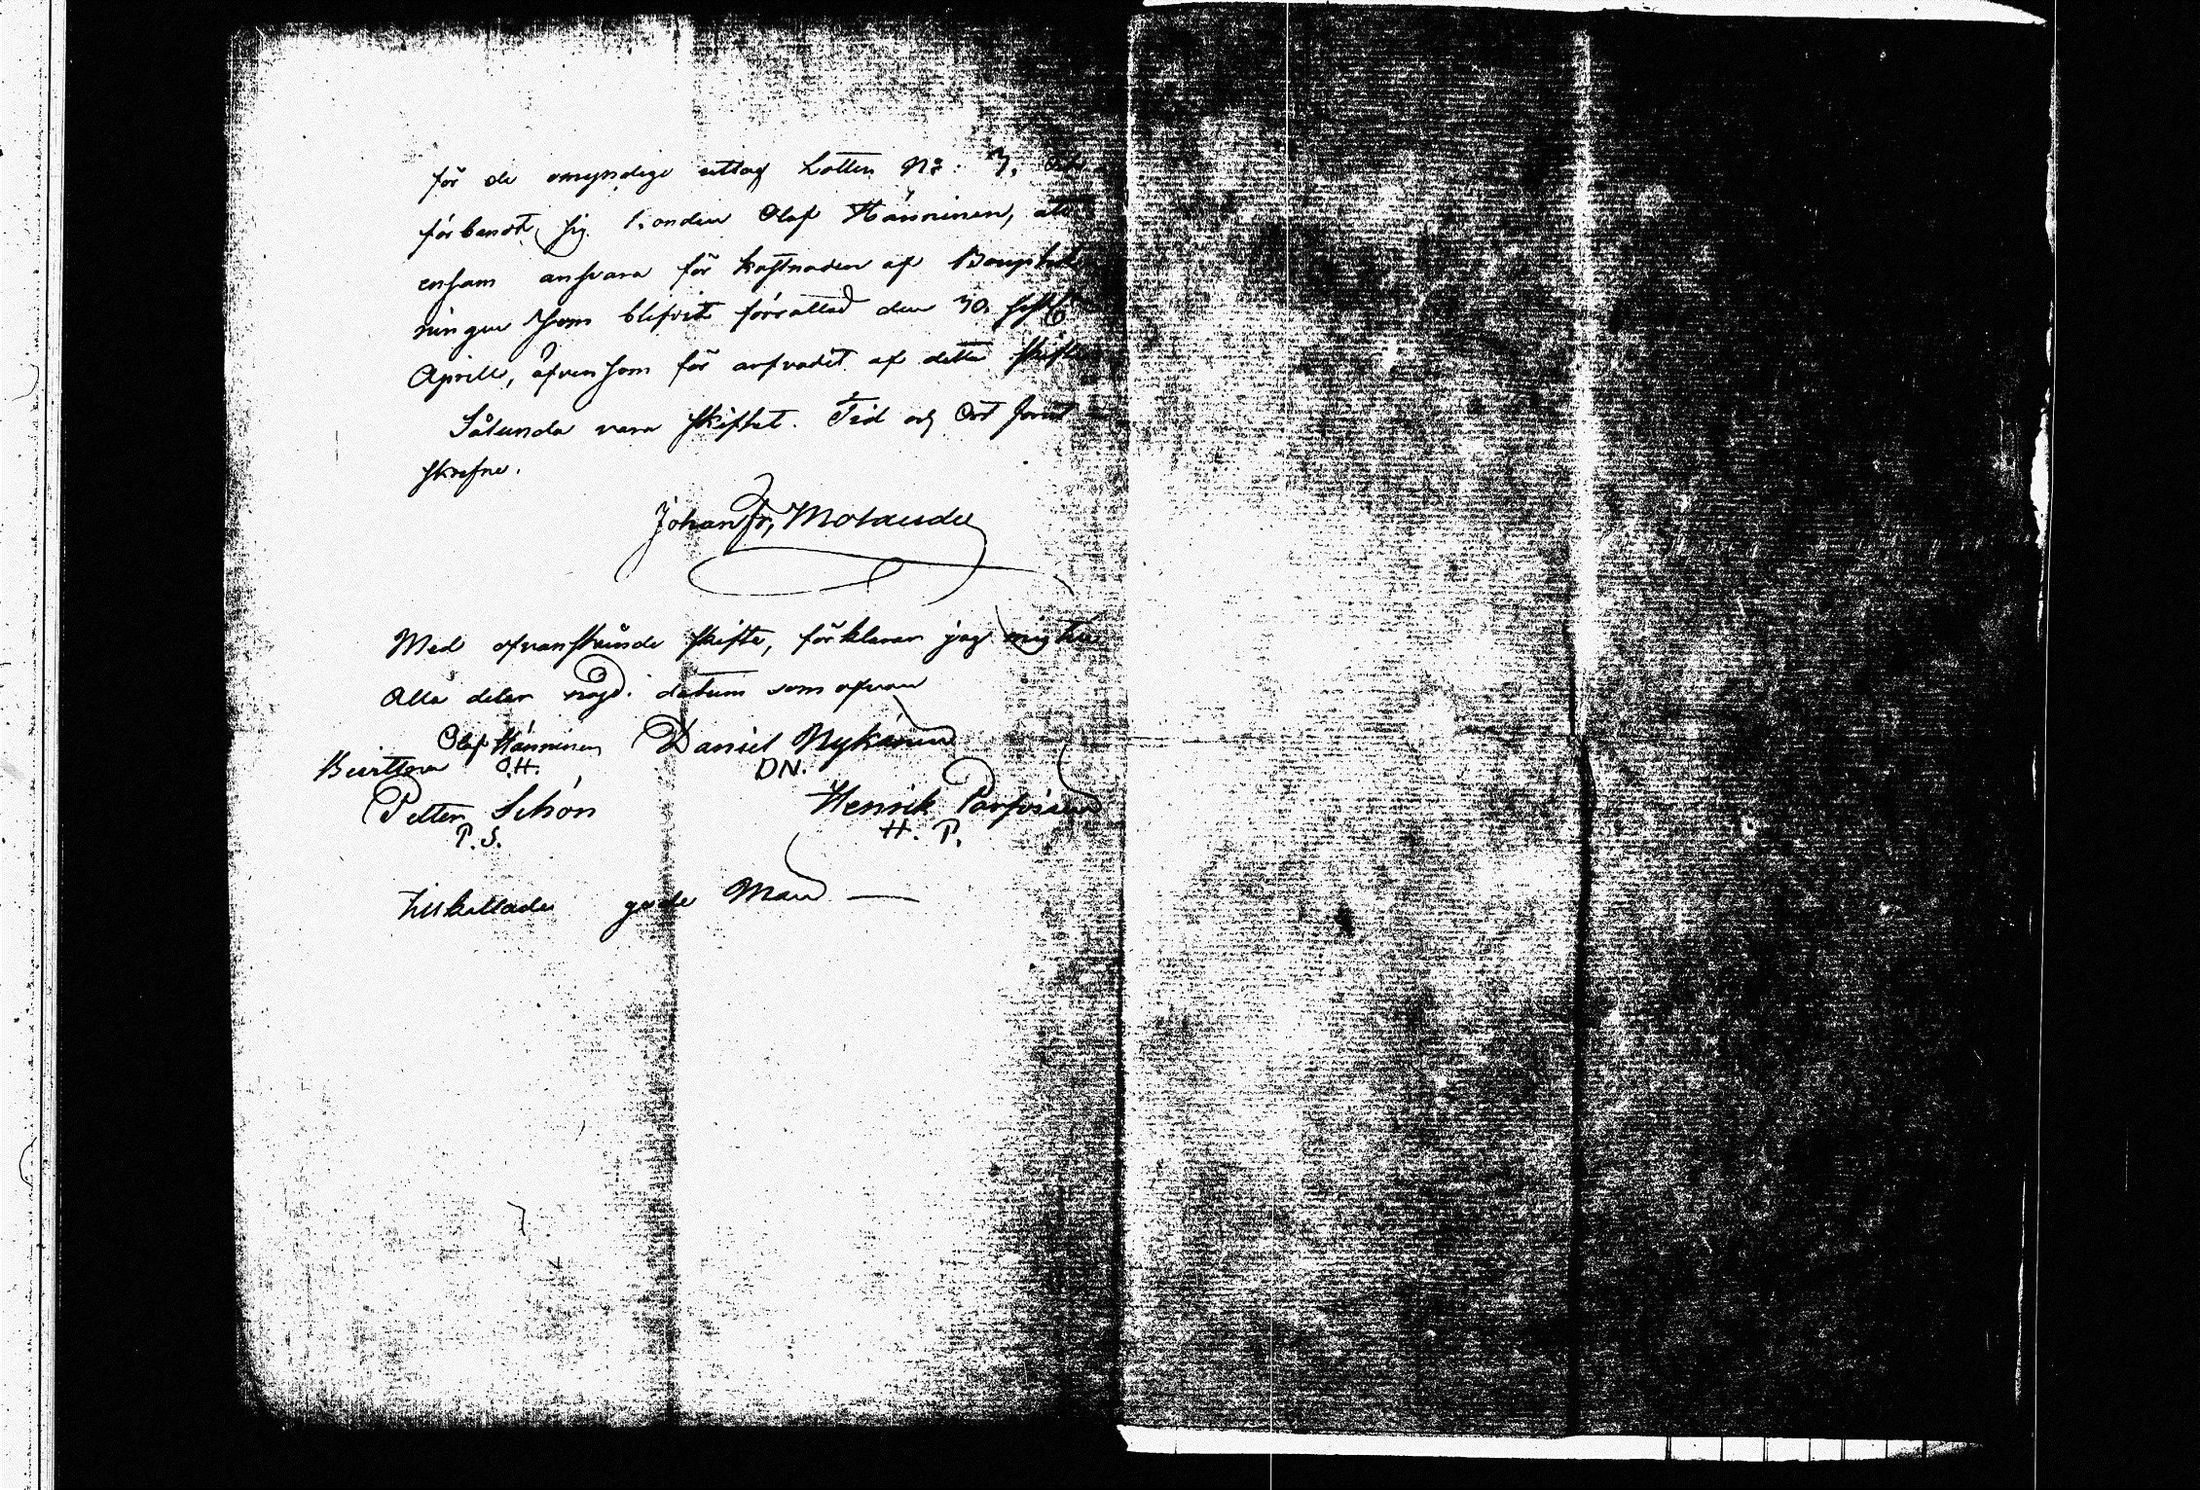 för de omyndige uttog Lotten No: 3,
förbandt sig bonden Olof Hänninen, att
ensam ansvara för kostnaden af Bouptek
ningen som blifvit förrättad den 30. sistl:
Aprill, äfvensom för arfvodet af detta skifte
Sålunda vara skiftat. Tid och Ort förut
skrefne.
Johan Fr, Molander
Med ofvanstående skifte, förklarar jag mig till
Alla delar nögd. datum som ofvan
Olof Hänninen Daniel Nykänen
O.H. DN.
Petter Schön Henrik Parviainen
P.S. H. P.
tillkallade gode Män —